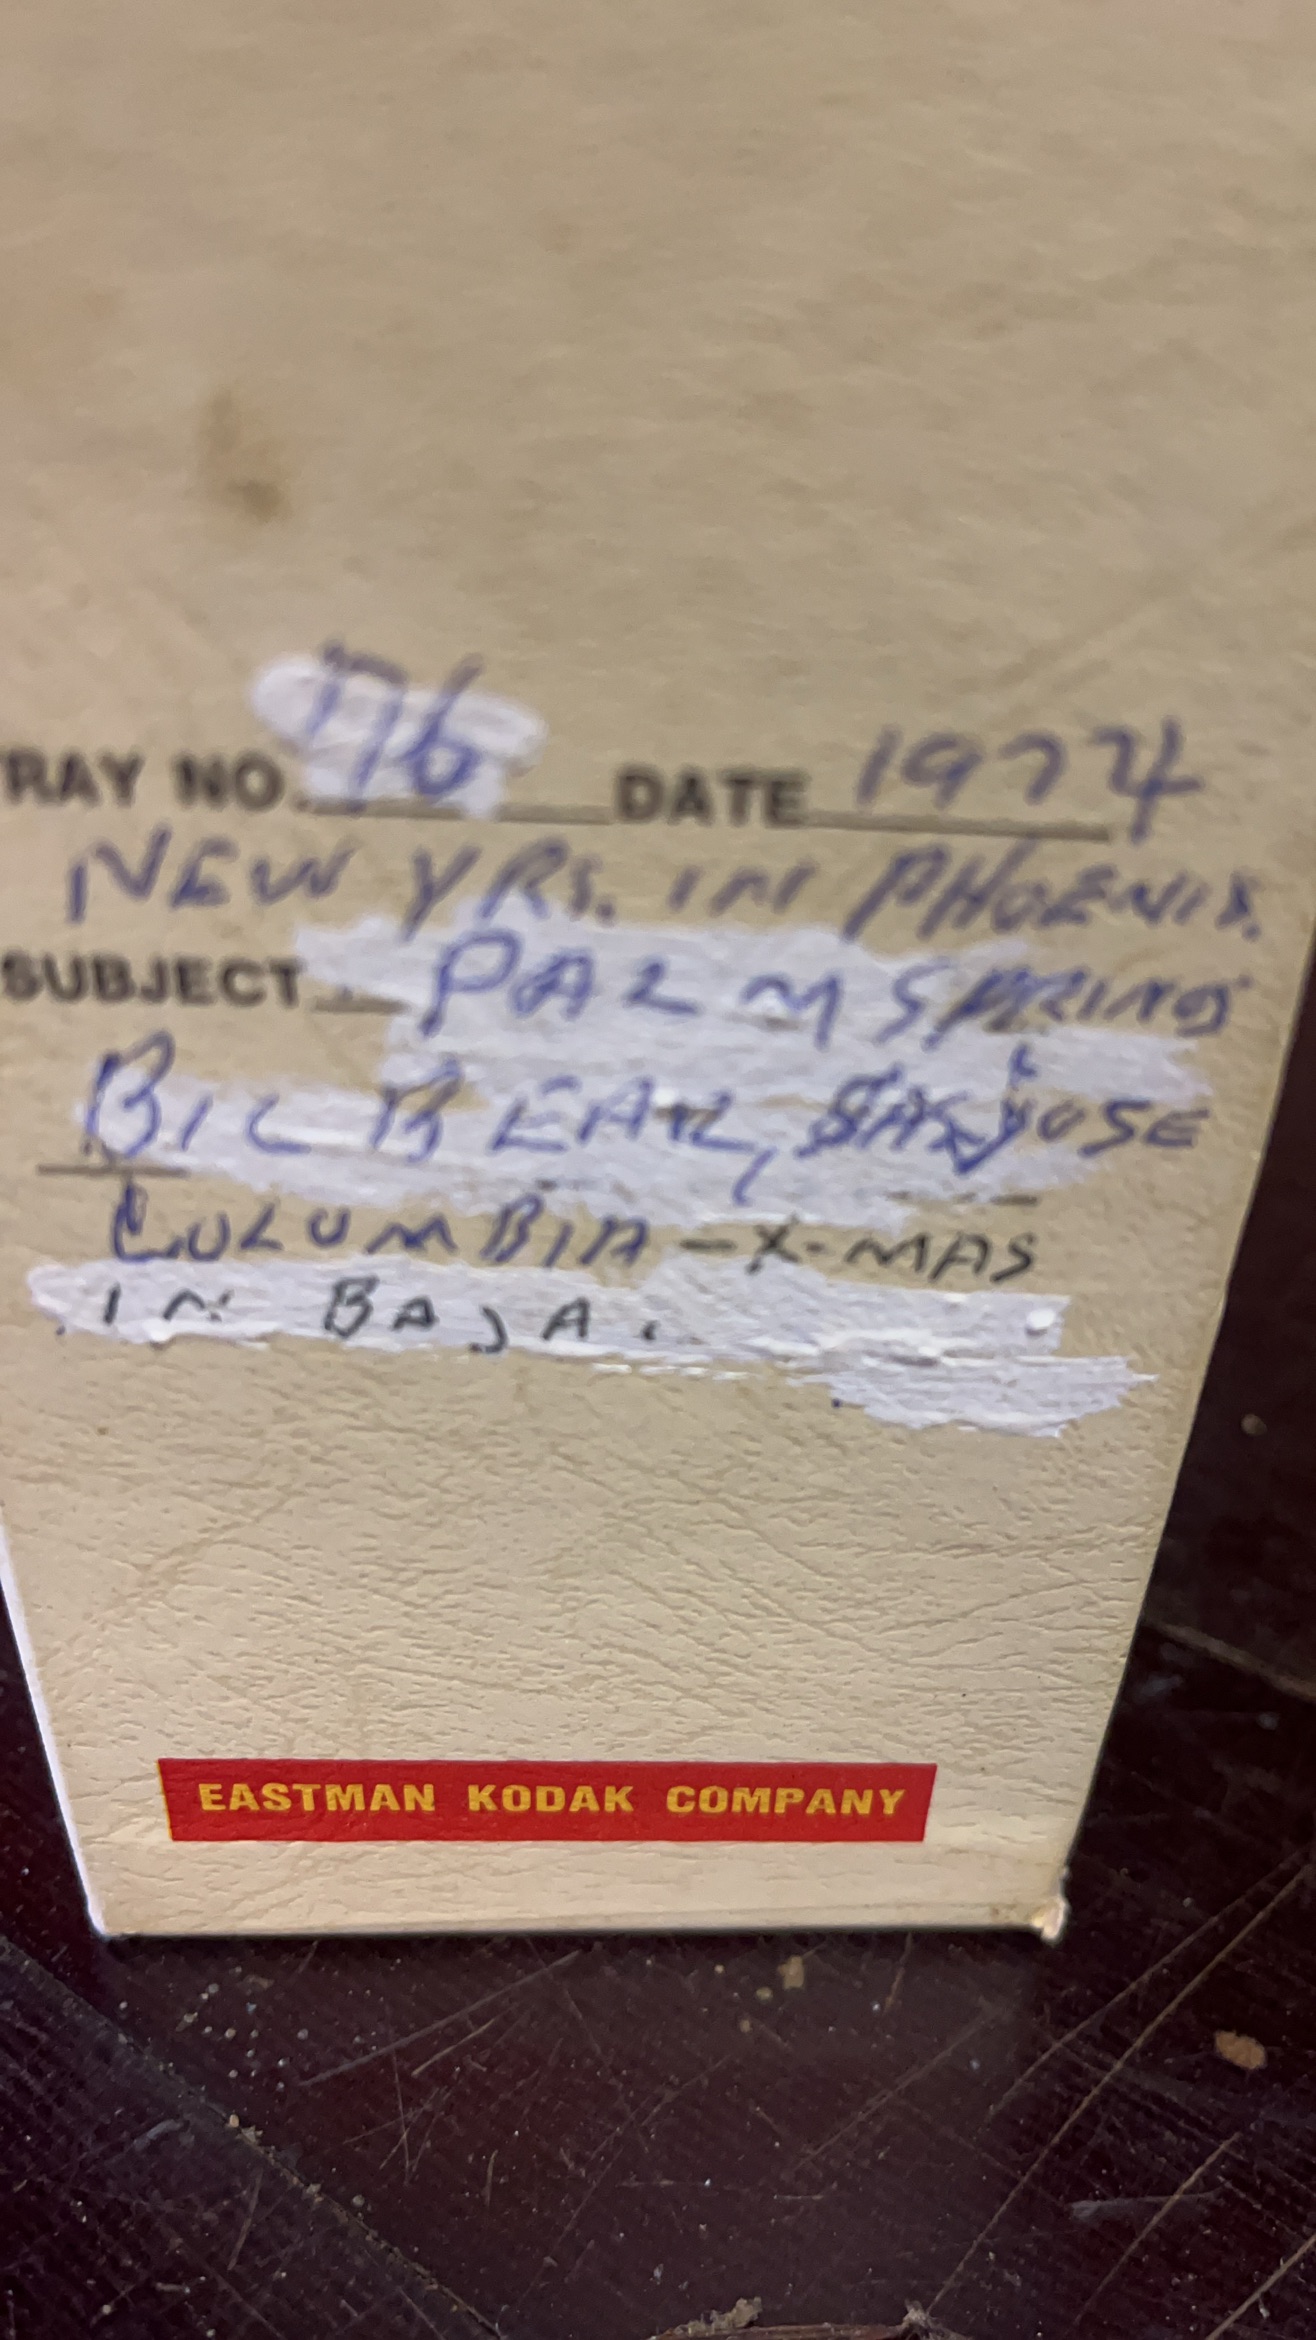 RAY NO. 76 DATE 1974
NEW YRS. IN PHOENIX.
SUBJECT PALM SPRINGS
BIG BEAR, SAN JOSE
COLUMBIA - X-MAS
IN BAJA.
EASTMAN KODAK COMPANY